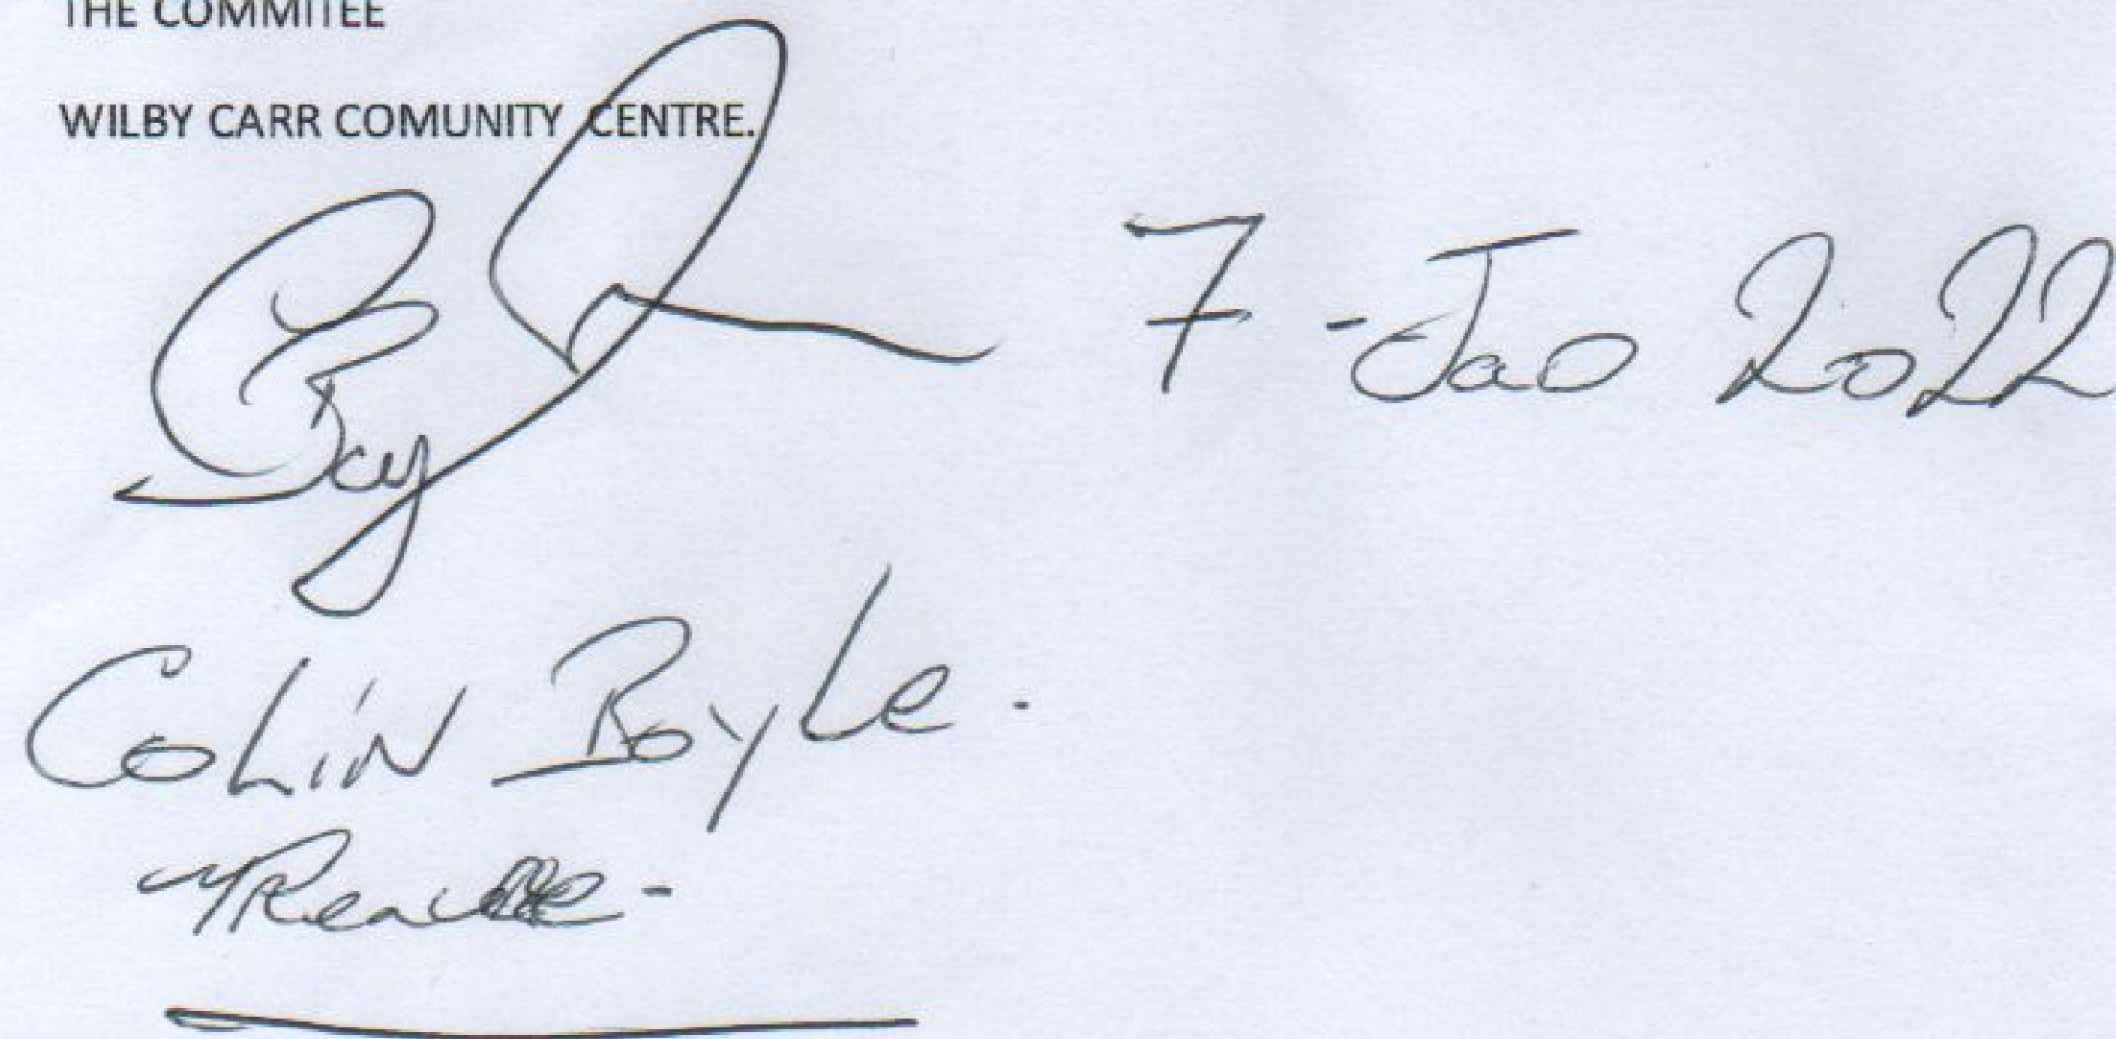 THE COMMITEE
WILBY CARR COMUNITY CENTRE.
7 - Jan 2022
Colin Boyle.